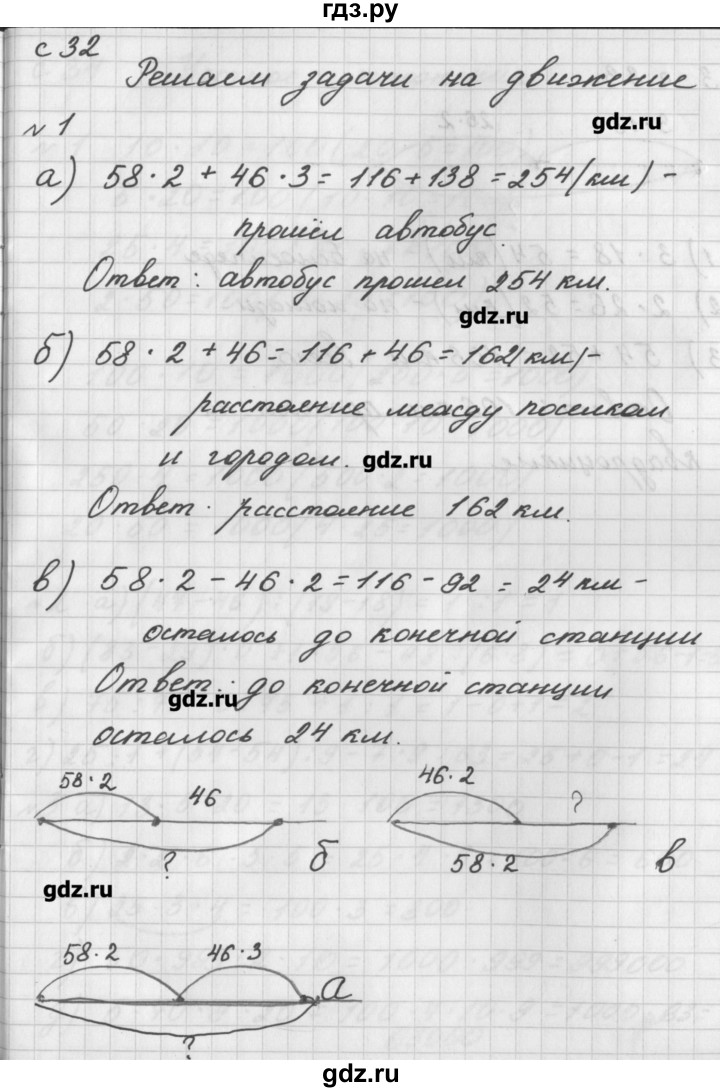 гдз.ру
с 32
Решаем задачи на движение
№ 1
gdz.ru
а) 58·2 + 46·3 = 116 + 138 = 254 (км) -
прошёл автобус.
Ответ: автобус прошел 254 км.
gdz.ru
б) 58·2 + 46 = 116 + 46 = 162 (км) -
расстояние между поселком
и городом.
gdz.ru
Ответ. расстояние 162 км.
в) 58·2 - 46·2 = 116 - 92 = 24 км -
осталось до конечной станции
Ответ: до конечной станции
gdz.ru
осталось 24 км.
58·2 46 ? б
46·2 ? 58·2 в
gdz.ru
58·2 46·3 а
?
gdz.ru